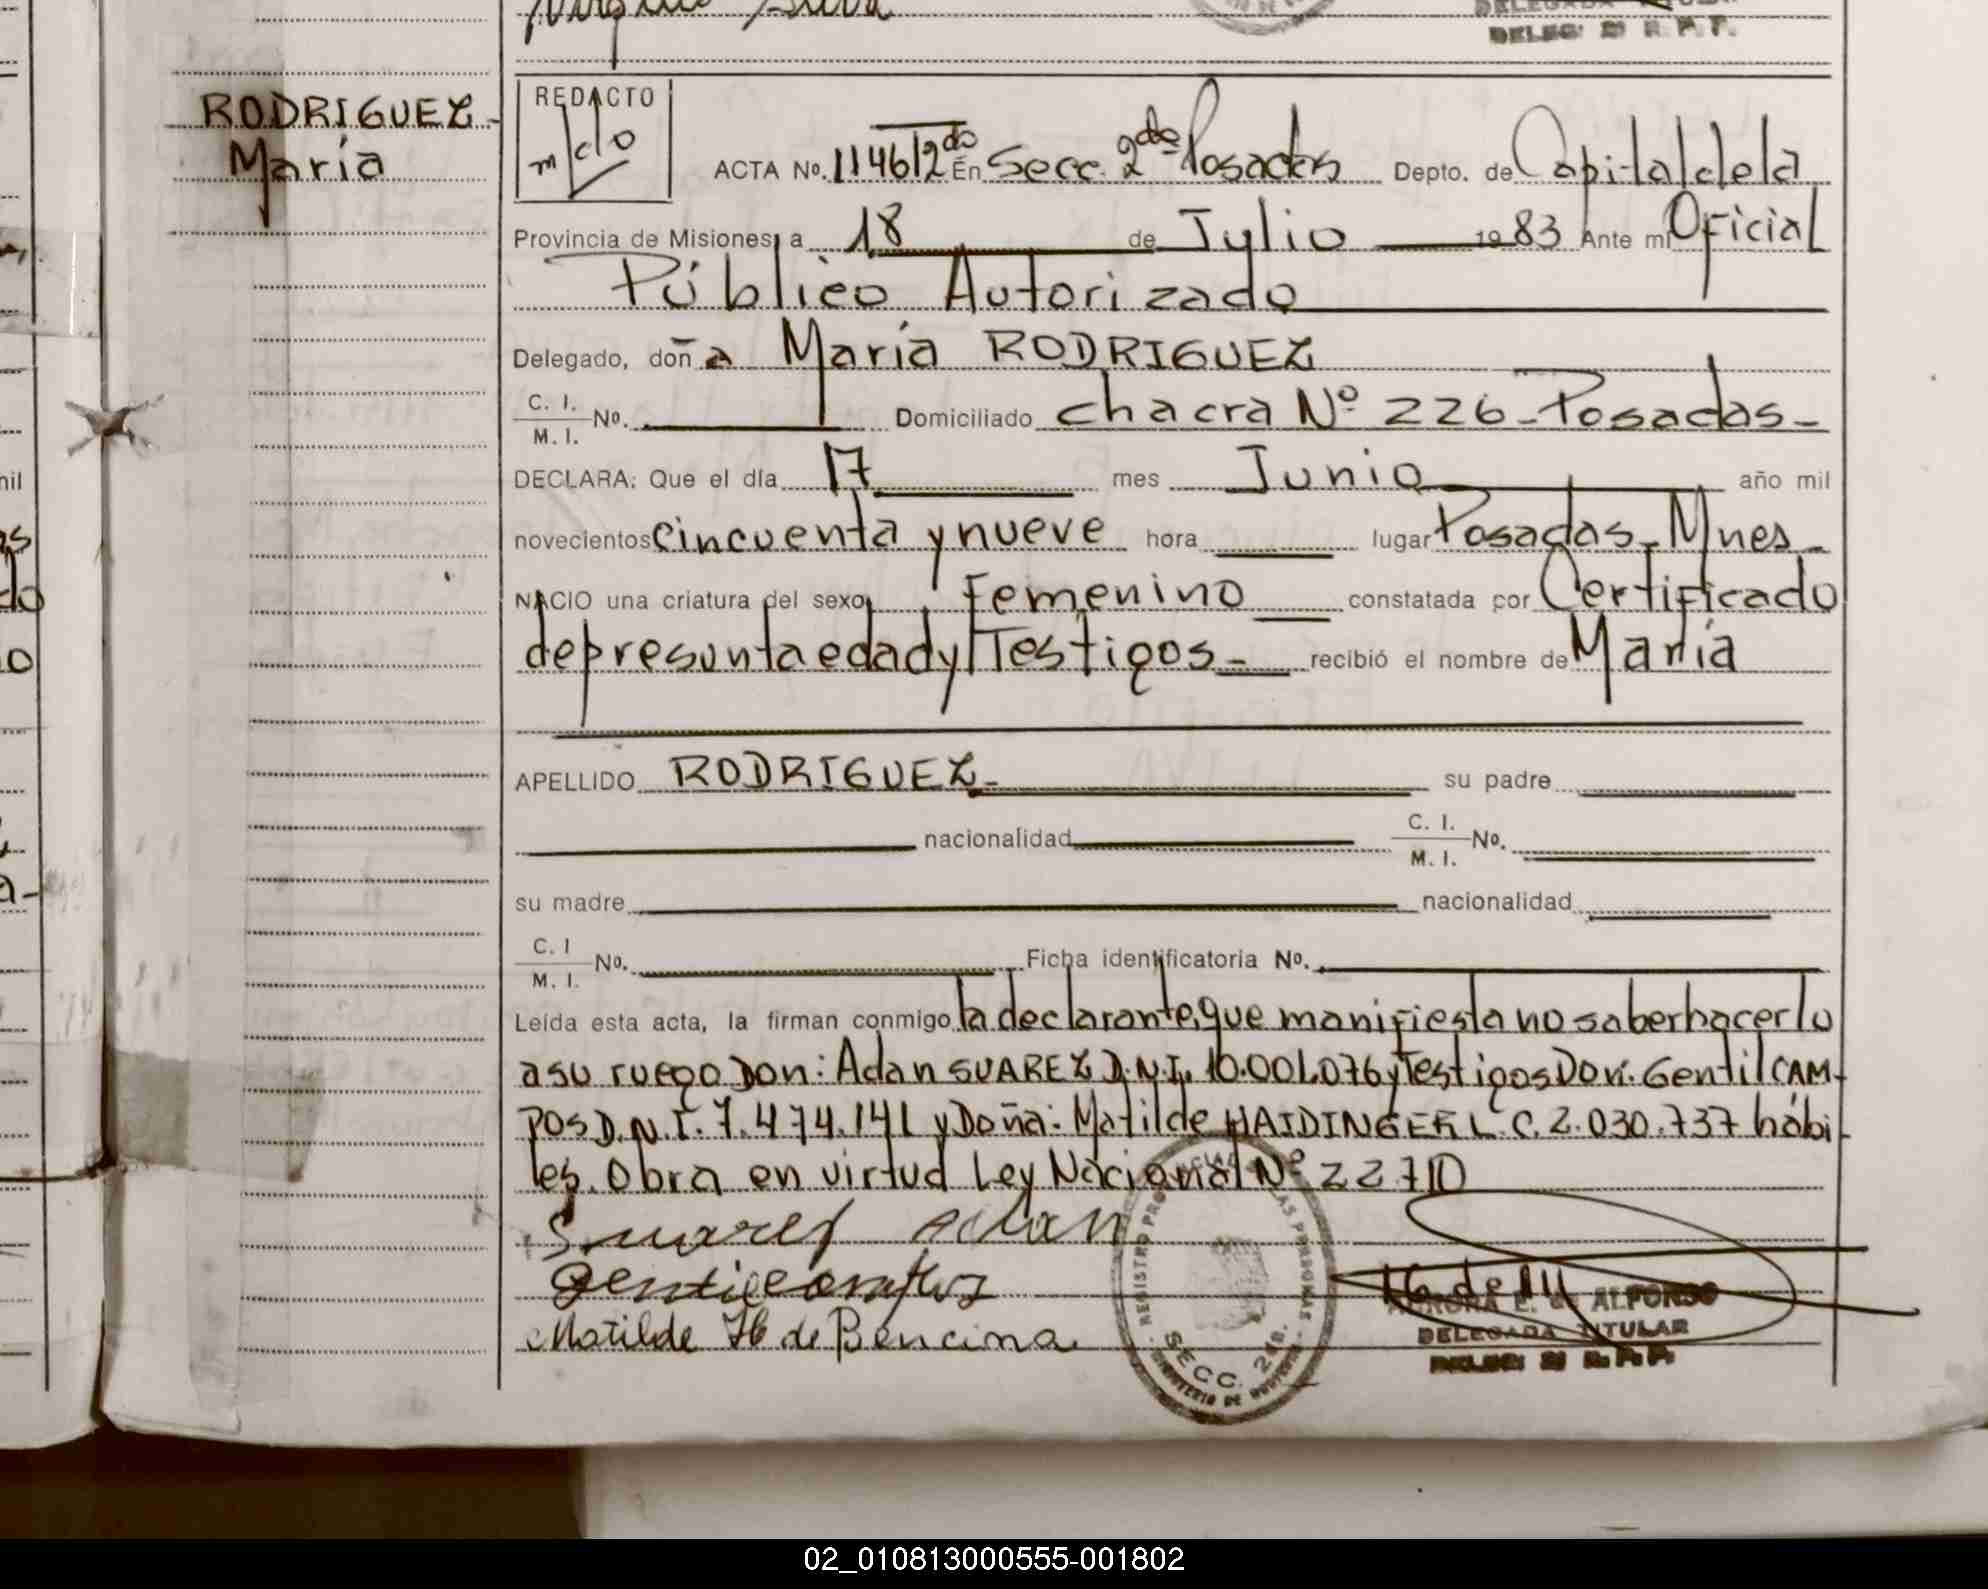 Virgilio Silva
DELEGADA TITULAR
DELEG: 21 R. P. P.
RODRIGUEZ
María
REDACTO
m/c/o
ACTA No. 1146/2do En Secc. 2da Posadas Depto. de Capital de la
Provincia de Misiones, a 18 de Julio 1983 Ante mí Oficial
Público Autorizado
Delegado, doña María RODRIGUEZ
C. I.
M. I. No. Domiciliado chacra Nº 226 - Posadas -
DECLARA: Que el día 17 mes Junio año mil
novecientos cincuenta y nueve hora lugar Posadas - Mnes -
NACIO una criatura del sexo Femenino constatada por Certificado
de presunta edad y Testigos - recibió el nombre de María
APELLIDO RODRIGUEZ - su padre
nacionalidad C. I.
M. I. No.
su madre nacionalidad
C. I
M. I. No. Ficha identificatoria No.
Leída esta acta, la firman conmigo la declarante, que manifiesta no saber hacerlo
a su ruego Don: Adan SUAREZ D.N.I. 10.001.076 y Testigos Don: Gentil CAM-
POS D.N.I. 7.474.141 y Doña: Matilde HAIDINGER L.C. 2.030.737 hábi-
les. Obra en virtud Ley Nacional Nº 22.710
Suarez Adan
Gentil Campos
Matilde H de Bencina
REGISTRO PRO DE LAS PERSONAS
SECC. 2da.
MINISTERIO DE GOBIERNO
AURORA E. de ALFONSO
DELEGADA TITULAR
DELEG: 21 R. P. P.
02_010813000555-001802